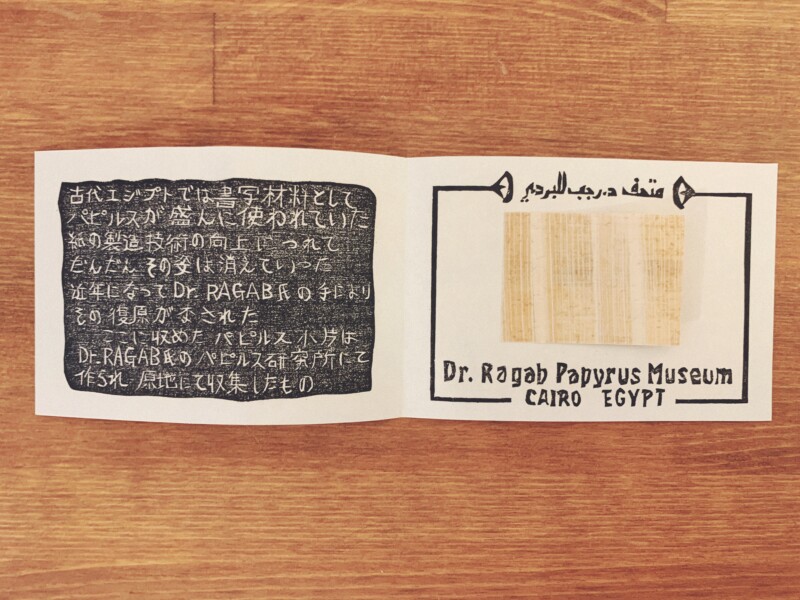 古代エジプトでは書写材料として
パピルスが盛んに使われていた
紙の製造技術の向上につれて
だんだんその姿は消えていった
近年になってDr. RAGAB氏の手により
その復原がなされた
ここに収めたパピルス小片は
Dr.RAGAB氏のパピルス研究所にて
作られ原地にて収集したもの
متحف د.رجب للبردي
Dr. Ragab Papyrus Museum
CAIRO EGYPT